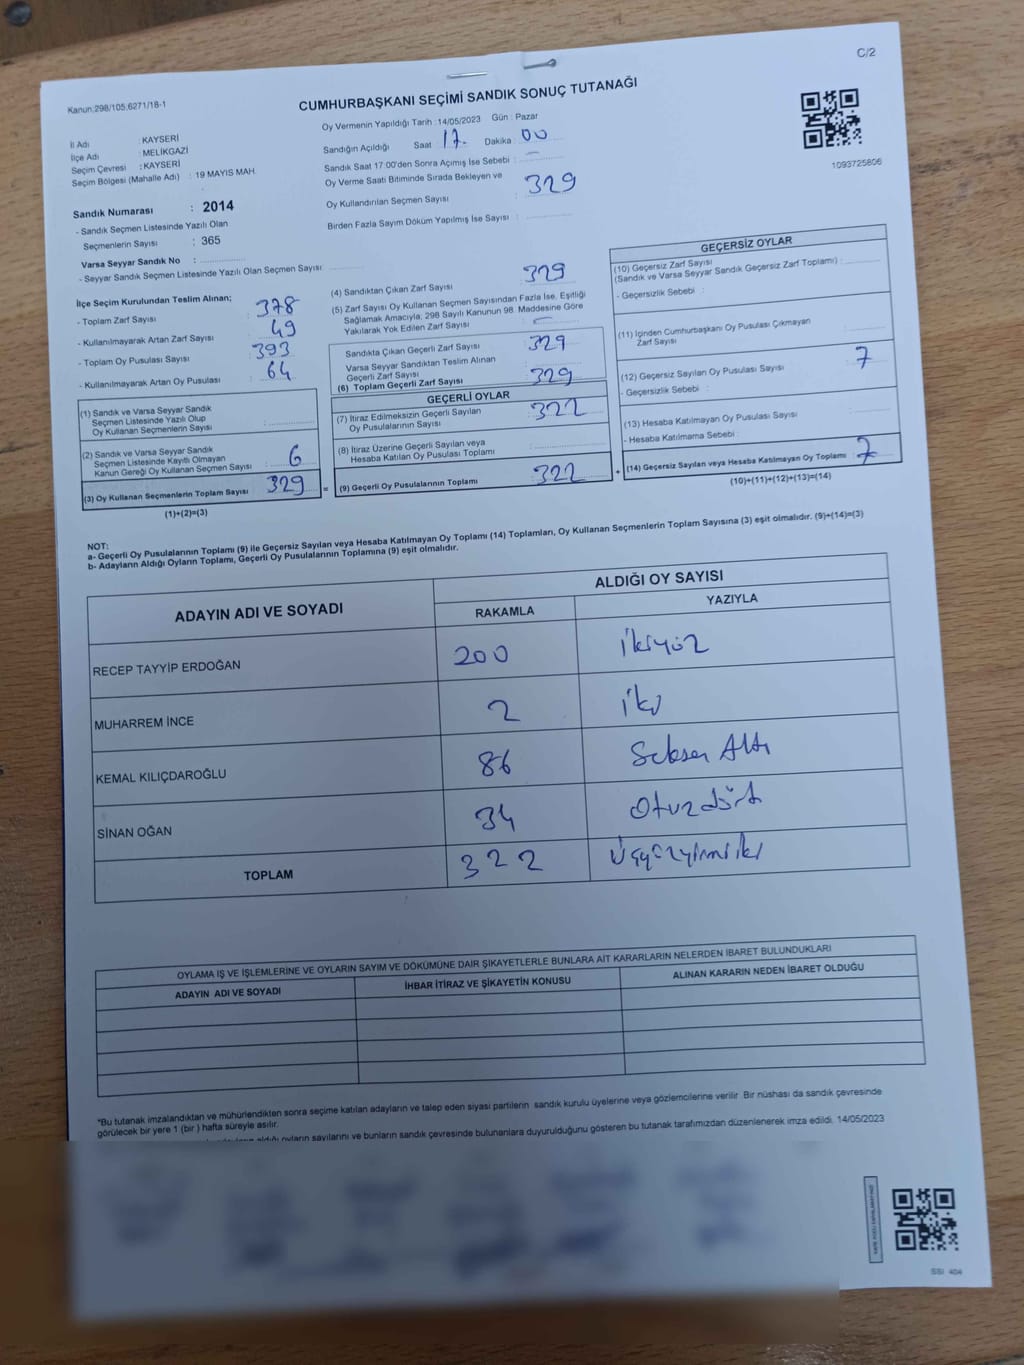 C/2
Kanun:298/105,6271/18-1
CUMHURBAŞKANI SEÇİMİ SANDIK SONUÇ TUTANAĞI
İl Adı : KAYSERİ
İlçe Adı : MELİKGAZİ
Seçim Çevresi : KAYSERİ
Seçim Bölgesi (Mahalle Adı) : 19 MAYIS MAH.
Sandık Numarası : 2014
- Sandık Seçmen Listesinde Yazılı Olan
Seçmenlerin Sayısı : 365
Varsa Seyyar Sandık No :
- Seyyar Sandık Seçmen Listesinde Yazılı Olan Seçmen Sayısı:
Oy Vermenin Yapıldığı Tarih :14/05/2023 Gün : Pazar
Sandığın Açıldığı Saat 17. Dakika : 00
Sandık Saat 17:00'den Sonra Açımış İse Sebebi : —
Oy Verme Saati Bitiminde Sırada Bekleyen ve
Oy Kullandırılan Seçmen Sayısı : 329
Birden Fazla Sayım Döküm Yapılmış İse Sayısı :
1093725806
İlçe Seçim Kurulundan Teslim Alınan;
- Toplam Zarf Sayısı : 378
- Kullanılmayarak Artan Zarf Sayısı : 49
- Toplam Oy Pusulası Sayısı : 393
- Kullanılmayarak Artan Oy Pusulası : 64
(1) Sandık ve Varsa Seyyar Sandık
Seçmen Listesinde Yazılı Olup
Oy Kullanan Seçmenlerin Sayısı :
(2) Sandık ve Varsa Seyyar Sandık
Seçmen Listesinde Kayıtlı Olmayan
Kanun Gereği Oy Kullanan Seçmen Sayısı : 6
(3) Oy Kullanan Seçmenlerin Toplam Sayısı : 329
(1)+(2)=(3)
(4) Sandıktan Çıkan Zarf Sayısı : 329
(5) Zarf Sayısı Oy Kullanan Seçmen Sayısından Fazla İse, Eşitliği
Sağlamak Amacıyla, 298 Sayılı Kanunun 98. Maddesine Göre
Yakılarak Yok Edilen Zarf Sayısı : —
Sandıkta Çıkan Geçerli Zarf Sayısı : 329
Varsa Seyyar Sandıktan Teslim Alınan
Geçerli Zarf Sayısı
(6) Toplam Geçerli Zarf Sayısı : 329
GEÇERLİ OYLAR
(7) İtiraz Edilmeksizin Geçerli Sayılan
Oy Pusulalarının Sayısı : 322
(8) İtiraz Üzerine Geçerli Sayılan veya
Hesaba Katılan Oy Pusulası Toplamı :
= (9) Geçerli Oy Pusulalarının Toplamı : 322
GEÇERSİZ OYLAR
(10) Geçersiz Zarf Sayısı
(Sandık ve Varsa Seyyar Sandık Geçersiz Zarf Toplamı) :
- Geçersizlik Sebebi :
(11) İçinden Cumhurbaşkanı Oy Pusulası Çıkmayan
Zarf Sayısı
(12) Geçersiz Sayılan Oy Pusulası Sayısı : 7
- Geçersizlik Sebebi :
(13) Hesaba Katılmayan Oy Pusulası Sayısı :
- Hesaba Katılmama Sebebi :
+ (14) Geçersiz Sayılan veya Hesaba Katılmayan Oy Toplamı : 7
(10)+(11)+(12)+(13)=(14)
NOT:
a- Geçerli Oy Pusulalarının Toplamı (9) ile Geçersiz Sayılan veya Hesaba Katılmayan Oy Toplamı (14) Toplamları, Oy Kullanan Seçmenlerin Toplam Sayısına (3) eşit olmalıdır. (9)+(14)=(3)
b- Adayların Aldığı Oyların Toplamı, Geçerli Oy Pusulalarının Toplamına (9) eşit olmalıdır.
ADAYIN ADI VE SOYADI ALDIĞI OY SAYISI
RAKAMLA YAZIYLA
RECEP TAYYİP ERDOĞAN 200 ikiyüz
MUHARREM İNCE 2 iki
KEMAL KILIÇDAROĞLU 86 Seksen Altı
SİNAN OĞAN 34 Otuzdört
TOPLAM 322 Üçyüzyirmiiki
OYLAMA İŞ VE İŞLEMLERİNE VE OYLARIN SAYIM VE DÖKÜMÜNE DAİR ŞİKAYETLERLE BUNLARA AİT KARARLARIN NELERDEN İBARET BULUNDUKLARI
ADAYIN ADI VE SOYADI İHBAR İTİRAZ VE ŞİKAYETİN KONUSU ALINAN KARARIN NEDEN İBARET OLDUĞU
*Bu tutanak imzalandıktan ve mühürlendikten sonra seçime katılan adayların ve talep eden siyasi partilerin sandık kurulu üyelerine veya gözlemcilerine verilir. Bir nüshası da sandık çevresinde
görülecek bir yere 1 (bir ) hafta süreyle asılır.
aldığı oyların sayılarını ve bunların sandık çevresinde bulunanlara duyurulduğunu gösteren bu tutanak tarafımızdan düzenlenerek imza edildi. 14/05/2023
SSI 404